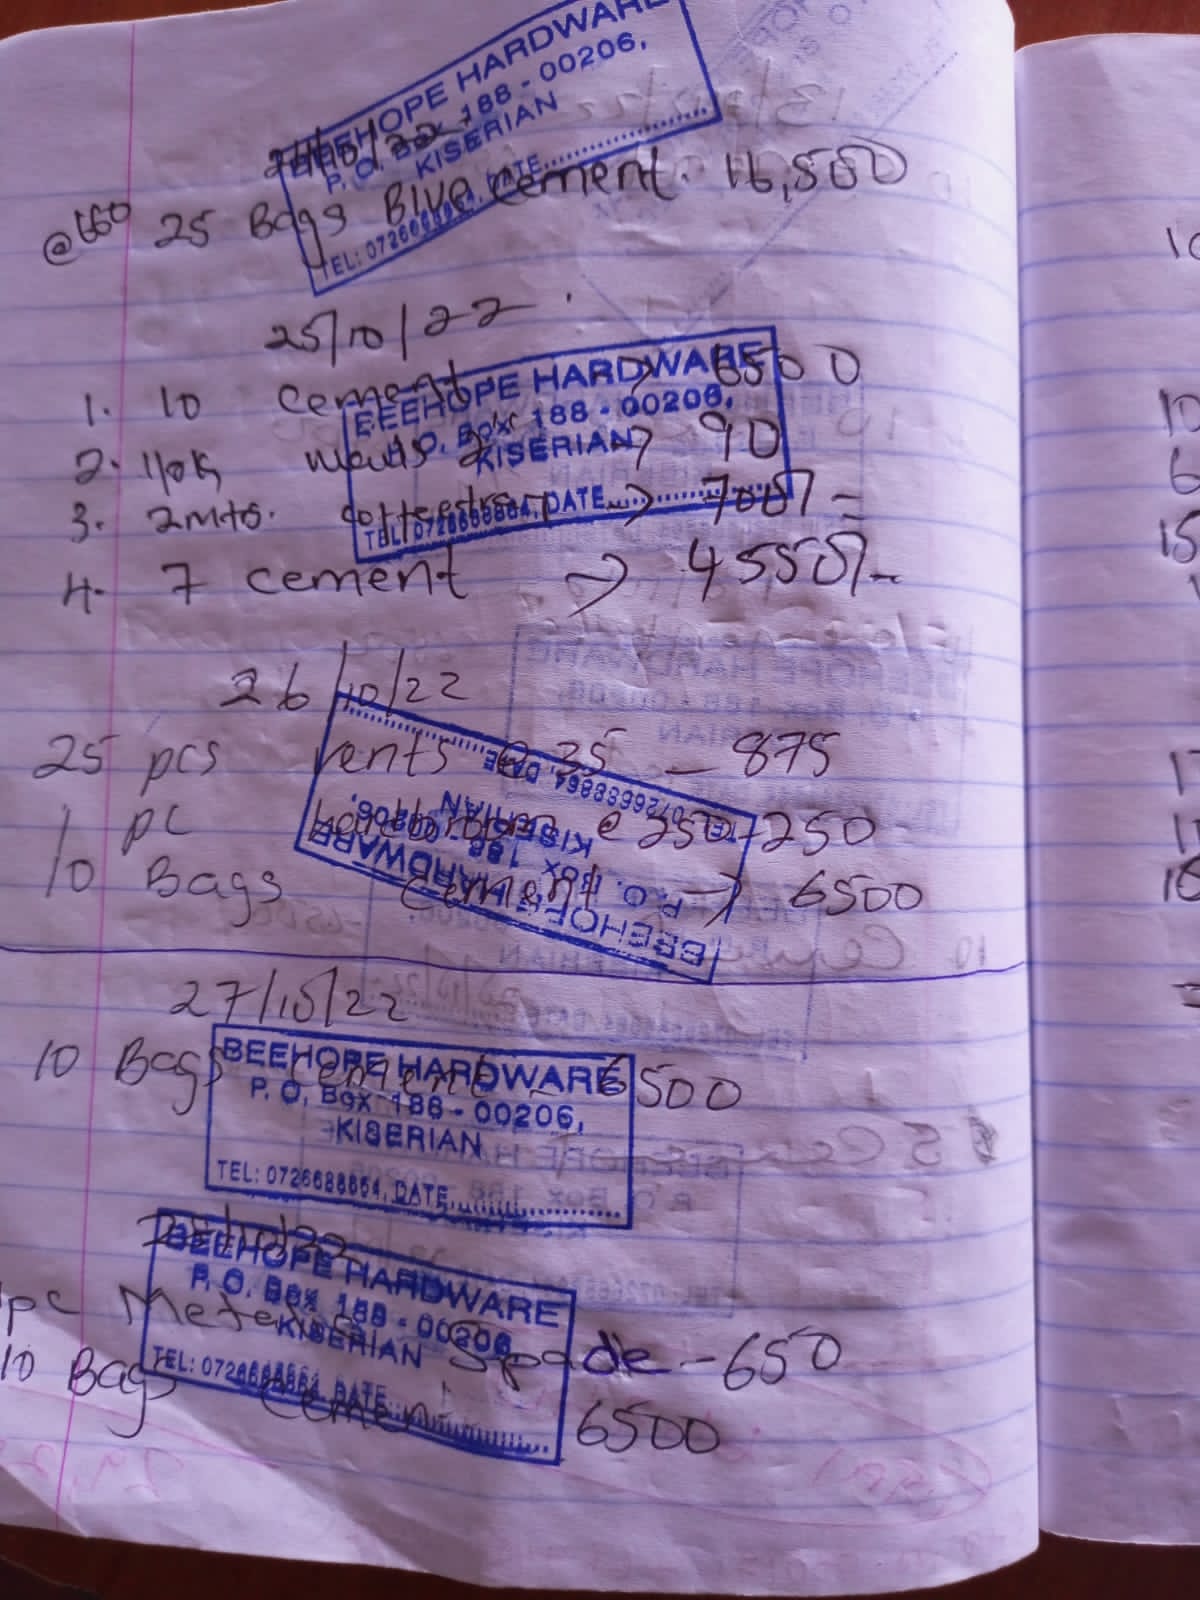 BEEHOPE HARDWARE
P. O. Box 188 - 00206,
KISERIAN
TEL: 0726688864, DATE
24/10/22
@660 25 Bags Blue cement. 16,500
25/10/22
BEEHOPE HARDWARE
P. O. Box 188 - 00206,
KISERIAN
TEL: 0726688864, DATE
1. 10 cement → 6500
2. 1/2 K → 90
3. 2mts. → 700/=
4. 7 cement → 4550/-
26/10/22
25 pcs vents @ 35 - 875
1 pc @ 250 - 250
10 Bags cement → 6500
BEEHOPE HARDWARE
P. O. Box 188 - 00206,
KISERIAN
TEL: 0726688864, DATE
27/10/22
10 Bags cement - 6500
BEEHOPE HARDWARE
P. O. Box 188 - 00206,
KISERIAN
TEL: 0726688864, DATE
28/10/22
BEEHOPE HARDWARE
P. O. Box 188 - 00206
KISERIAN
TEL: 0726688864, DATE
pc Spade - 650
10 Bags cement 6500